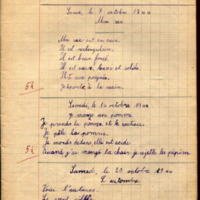 Lundi, le 9 octobre 1944
Mon sac
Mon sac est en cuir.
Il est rectangulaire.
Il est brun foncé.
Il est creux, lourd et solide.
Il a une poignée.
Je le porte à la main.
5½
Samedi, le 14 octobre 1944
Je mange une pomme
Je prends la pomme et le couteau.
Je pèle la pomme.
Je mords dedans, elle est acide.
Quand j'ai mangé la chair je rejette les pépins.
5½
Samedi, le 21 octobre 1944
L'automne
Voici l'automne.